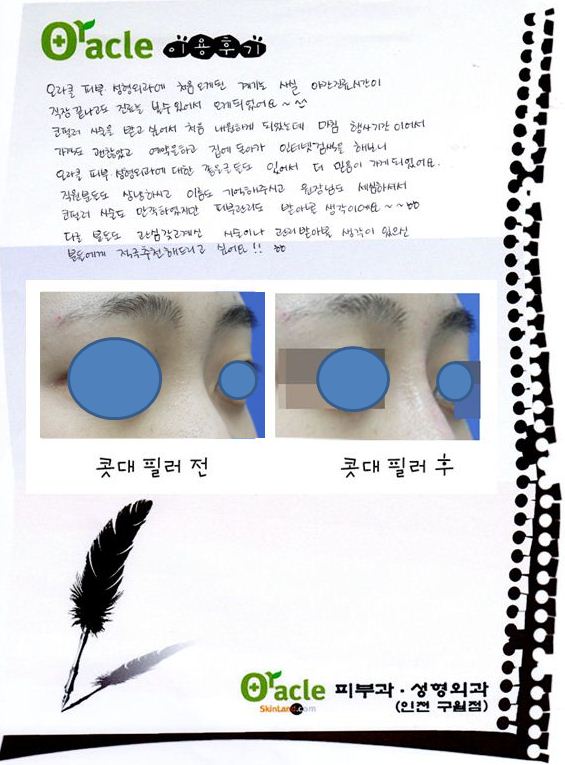 Oracle 이용후기
오라클 피부 성형외과에 처음 오게된 계기는 사실 야간진료시간이
직장 끝나고도 진료를 볼수 있어서 오게되었어요~^^
코필러 시술을 받고 싶어서 처음 내원하게 되었는데 마침 행사기간 이어서
가격도 괜찮았고 예약을하고 집에 돌아가 인터넷 검색을 해보니
오라클 피부 성형외과에 대한 좋은글들도 있어서 더 믿음이 가게되었어요.
직원분들도 상냥하시고 이름도 기억해주시고 원장님도 세심하셔서
코필러 시술도 만족하였지만 피부관리도 받아볼 생각이에요~~
다른 분들도 관심갖고계신 시술이나 관리받아볼 생각이 있으신
분들에게 적극추천해드리고 싶어요!!
콧대 필러 전
콧대 필러 후
Oracle 피부과·성형외과
SkinLand.com
(인천 구월점)